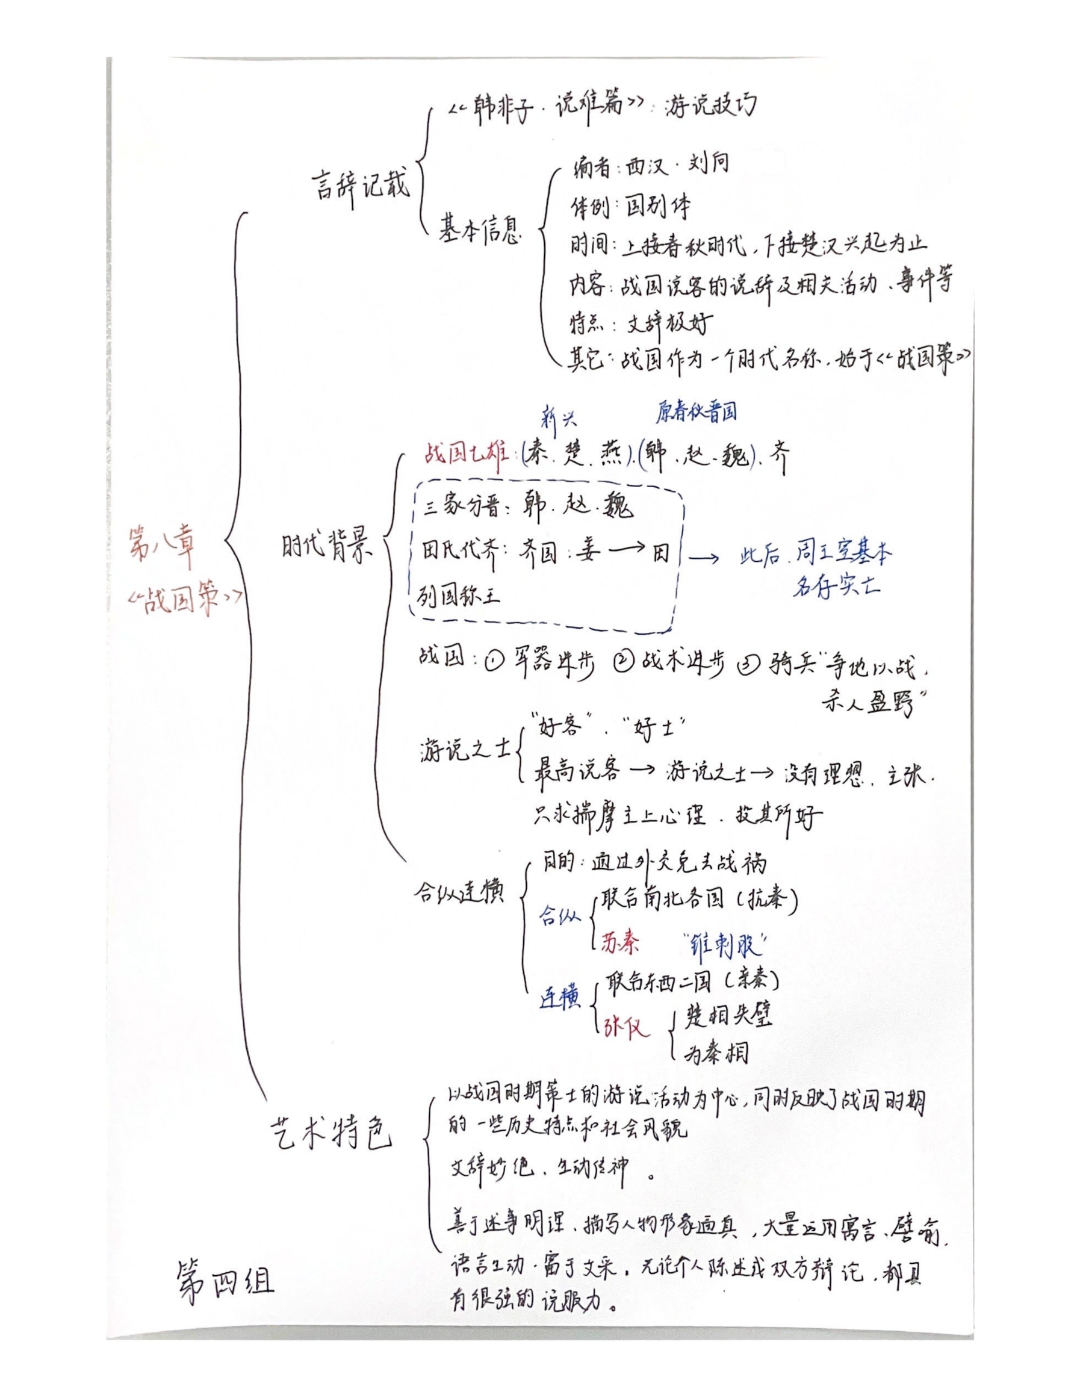 <<韩非子·说难篇>>：游说技巧
言辞记载
基本信息
编者：西汉·刘向
体例：国别体
时间：上接春秋时代，下接楚汉兴起为止
内容：战国说客的说辞及相关活动、事件等
特点：文辞极好
其它：战国作为一个时代名称，始于<<战国策>>
新兴 原春秋晋国
战国七雄：(秦、楚、燕)、(韩、赵、魏)、齐
三家分晋：韩、赵、魏
田氏代齐：齐国：姜→田
列国称王
→ 此后，周王室基本
名存实亡
时代背景
第八章
<<战国策>>
战国：① 军器进步 ② 战术进步 ③ 骑兵 "争地以战，
杀人盈野"
游说之士
"好客"、"好士"
最高说客→游说之士→没有理想、主张．
只求揣摩主上心理、投其所好
合纵连横
目的：通过外交免去战祸
合纵
联合南北各国（抗秦）
苏秦 "锥刺股"
连横
联合东西二国（亲秦）
张仪
楚相失璧
为秦相
艺术特色
以战国时期策士的游说活动为中心，同时反映了战国时期
的一些历史特点和社会风貌
文辞妙绝，生动传神。
善于述事明理、描写人物形象逼真，大量运用寓言、譬喻，
语言生动．富于文采，无论个人陈述或双方辩论，都具
有很强的说服力。
第四组